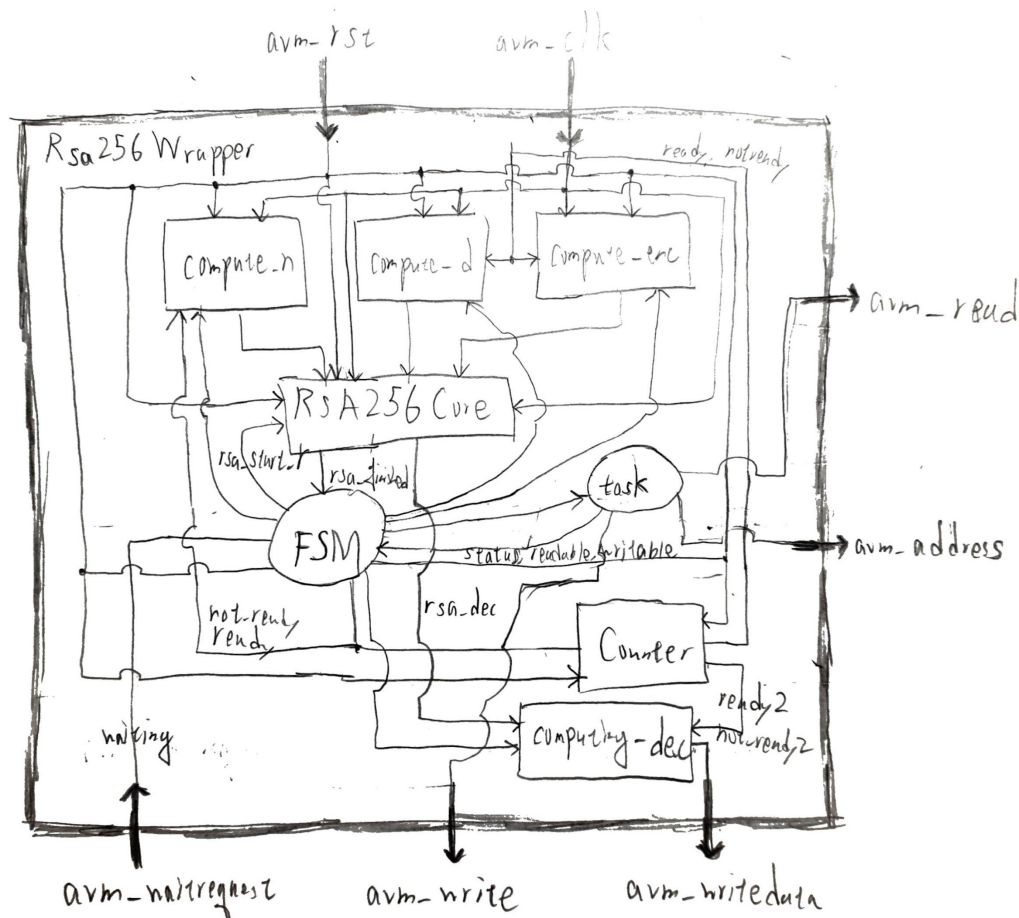 avm_rst
avm_clk
Rsa256 Wrapper
ready, notready
compute_n
compute_d
compute_enc
avm_read
RSA256 Core
rsa_start_r
rsa_finished
task
FSM
status/readable, writable
avm_address
rsa_dec
not_ready
ready
Counter
ready2
not_ready2
waiting
computing_dec
avm_waitrequest
avm_write
avm_writedata